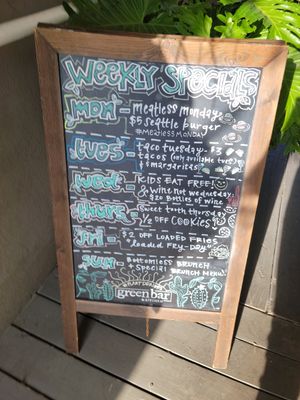 Weekly Specials
MON - meatless monday:
$5 seattle burger
#MEATLESSMONDAY
tues - taco tuesday - $3
tacos (only available tues)
$ margaritas
wed - KIDS EAT FREE!
& wine not wednesday:
$20 Bottles of wine
thurs - sweet tooth thursday
1/2 OFF COOKIES!
fri - $2 OFF LOADED FRIES
"loaded FRY-DAY"
sun - Bottomless BRUNCH
+ special BRUNCH MENU!
PLANT
green bar
& KITCHEN